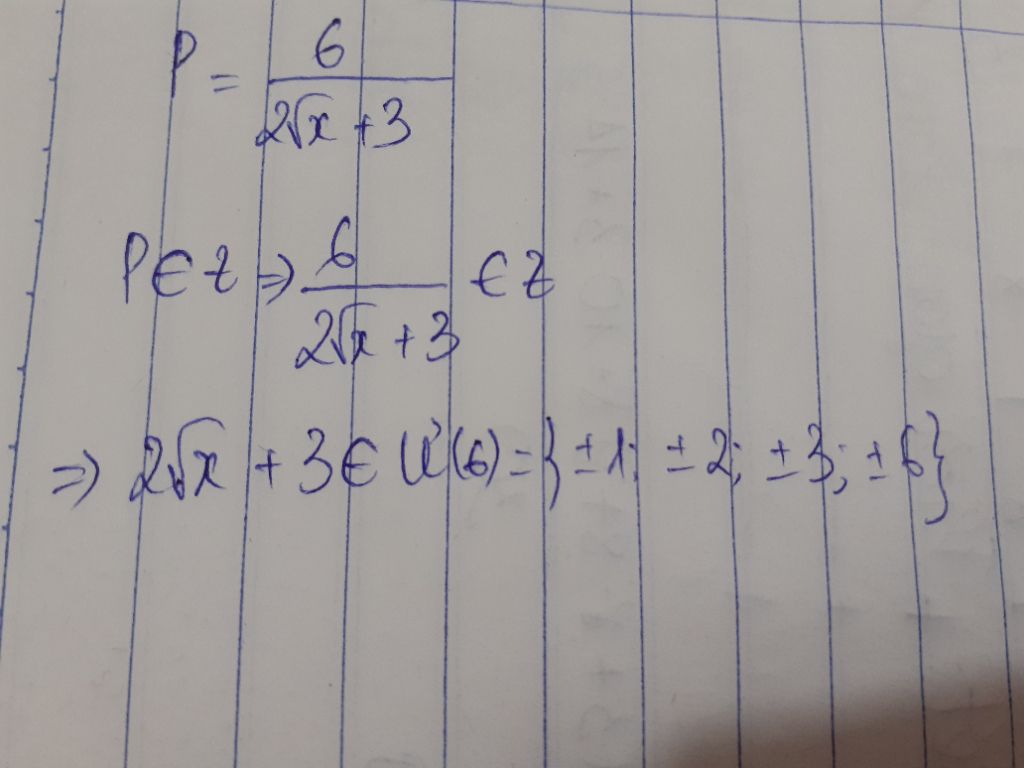 P = 6 / (2√x + 3)
P ∈ Z ⇒ 6 / (2√x + 3) ∈ Z
⇒ 2√x + 3 ∈ Ư(6) = { ±1; ±2; ±3; ±6 }